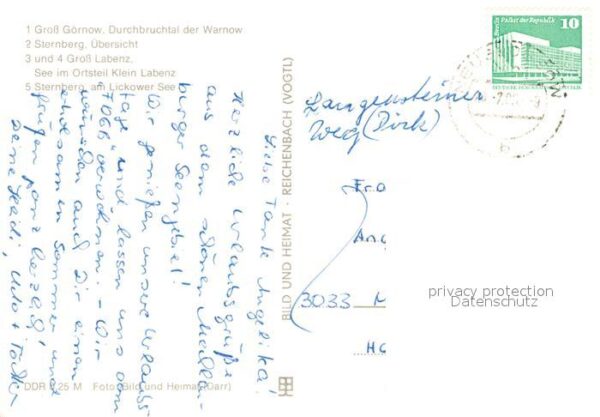 1 Groß Görnow, Durchbruchtal der Warnow
2 Sternberg, Übersicht
3 und 4 Groß Labenz,
See im Ortsteil Klein Labenz
5 Sternberg, am Luckower See
Liebe Tante Angelika!
Herzliche Urlaubsgrüße
aus dem schönen Mecklen-
burger Seengebiet!
Wir genießen unsere Urlaubs-
tage und lassen uns vom
FDGB verwöhnen. Wir
wünschen auch Dir einen
Sommer und
grüßen ganz herzlich,
Deine Heidi, Udo +
DDR 0,25 M Foto: Bild und Heimat (Darr)
BILD UND HEIMAT · REICHENBACH (VOGTL)
Palast der Republik 10
Langensteiner
Weg (Dirk)
Fra
An
3033 M
HC
privacy protection
Datenschutz